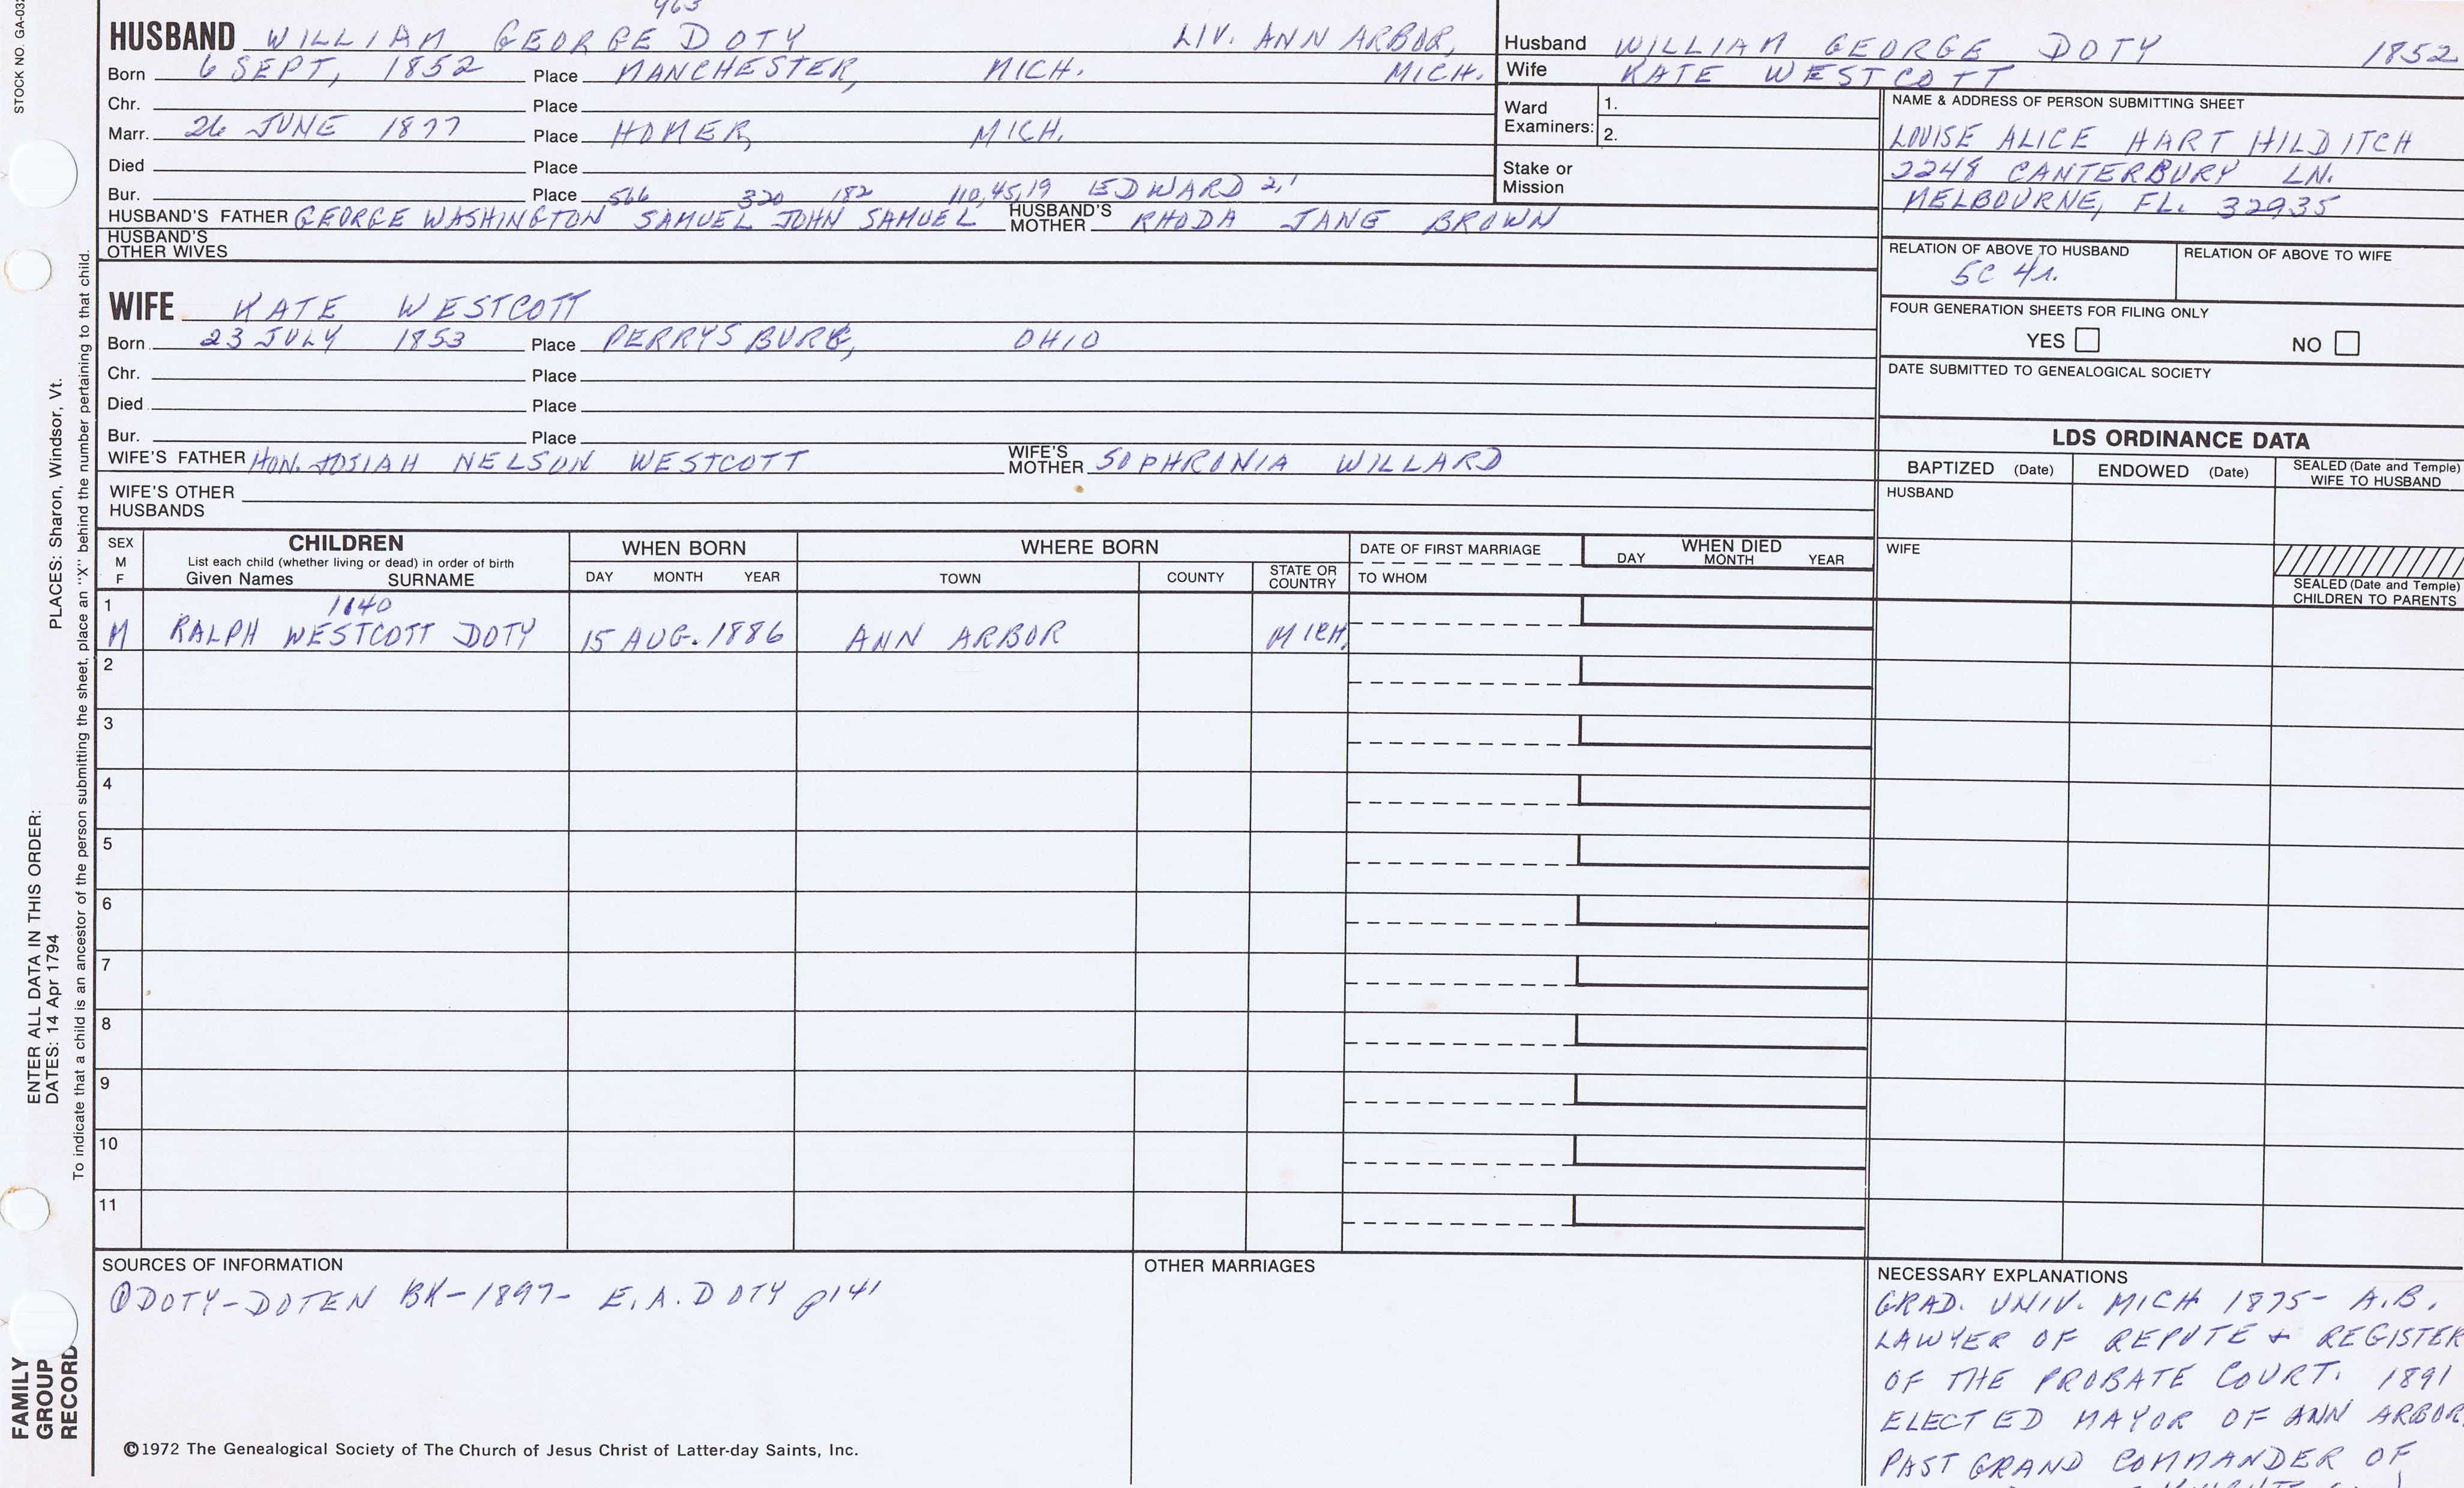 STOCK NO. GA-032
963
HUSBAND WILLIAM GEORGE DOTY LIV. ANN ARBOR,
Born 6 SEPT, 1852 Place MANCHESTER, MICH. MICH.
Chr. Place
Marr. 26 JUNE 1877 Place HOMER, MICH.
Died Place
Bur. Place 566 320 182 110,45,19 EDWARD 2,1
HUSBAND'S FATHER GEORGE WASHINGTON SAMUEL JOHN SAMUEL HUSBAND'S MOTHER RHODA JANE BROWN
HUSBAND'S OTHER WIVES
WIFE KATE WESTCOTT
Born 23 JULY 1853 Place PERRYSBURG, OHIO
Chr. Place
Died Place
Bur. Place
WIFE'S FATHER HON. JOSIAH NELSON WESTCOTT WIFE'S MOTHER SOPHRONIA WILLARD
WIFE'S OTHER HUSBANDS
Husband WILLIAM GEORGE DOTY 1852
Wife KATE WESTCOTT
Ward Examiners: 1.
2.
Stake or Mission
NAME & ADDRESS OF PERSON SUBMITTING SHEET
LOUISE ALICE HART HILDITCH
2248 CANTERBURY LN.
MELBOURNE, FL. 32935
RELATION OF ABOVE TO HUSBAND RELATION OF ABOVE TO WIFE
5C 4r.
FOUR GENERATION SHEETS FOR FILING ONLY
YES NO
DATE SUBMITTED TO GENEALOGICAL SOCIETY
LDS ORDINANCE DATA
BAPTIZED (Date) ENDOWED (Date) SEALED (Date and Temple) WIFE TO HUSBAND
HUSBAND
WIFE
SEALED (Date and Temple) CHILDREN TO PARENTS
SEX M F
CHILDREN
List each child (whether living or dead) in order of birth
Given Names SURNAME
WHEN BORN
DAY MONTH YEAR
WHERE BORN
TOWN COUNTY STATE OR COUNTRY
DATE OF FIRST MARRIAGE
TO WHOM
WHEN DIED
DAY MONTH YEAR
1 1140
M RALPH WESTCOTT DOTY 15 AUG. 1886 ANN ARBOR MICH.
2
3
4
5
6
7
8
9
10
11
SOURCES OF INFORMATION
① DOTY-DOTEN BK-1897- E.A. DOTY p141
©1972 The Genealogical Society of The Church of Jesus Christ of Latter-day Saints, Inc.
OTHER MARRIAGES
NECESSARY EXPLANATIONS
GRAD. UNIV. MICH 1875- A.B.
LAWYER OF REPUTE & REGISTER
OF THE PROBATE COURT. 1891
ELECTED MAYOR OF ANN ARBOR
PAST GRAND COMMANDER OF
ENTER ALL DATA IN THIS ORDER:
DATES: 14 Apr 1794
PLACES: Sharon, Windsor, Vt.
To indicate that a child is an ancestor of the person submitting the sheet, place an "X" behind the number pertaining to that child.
FAMILY
GROUP
RECORD